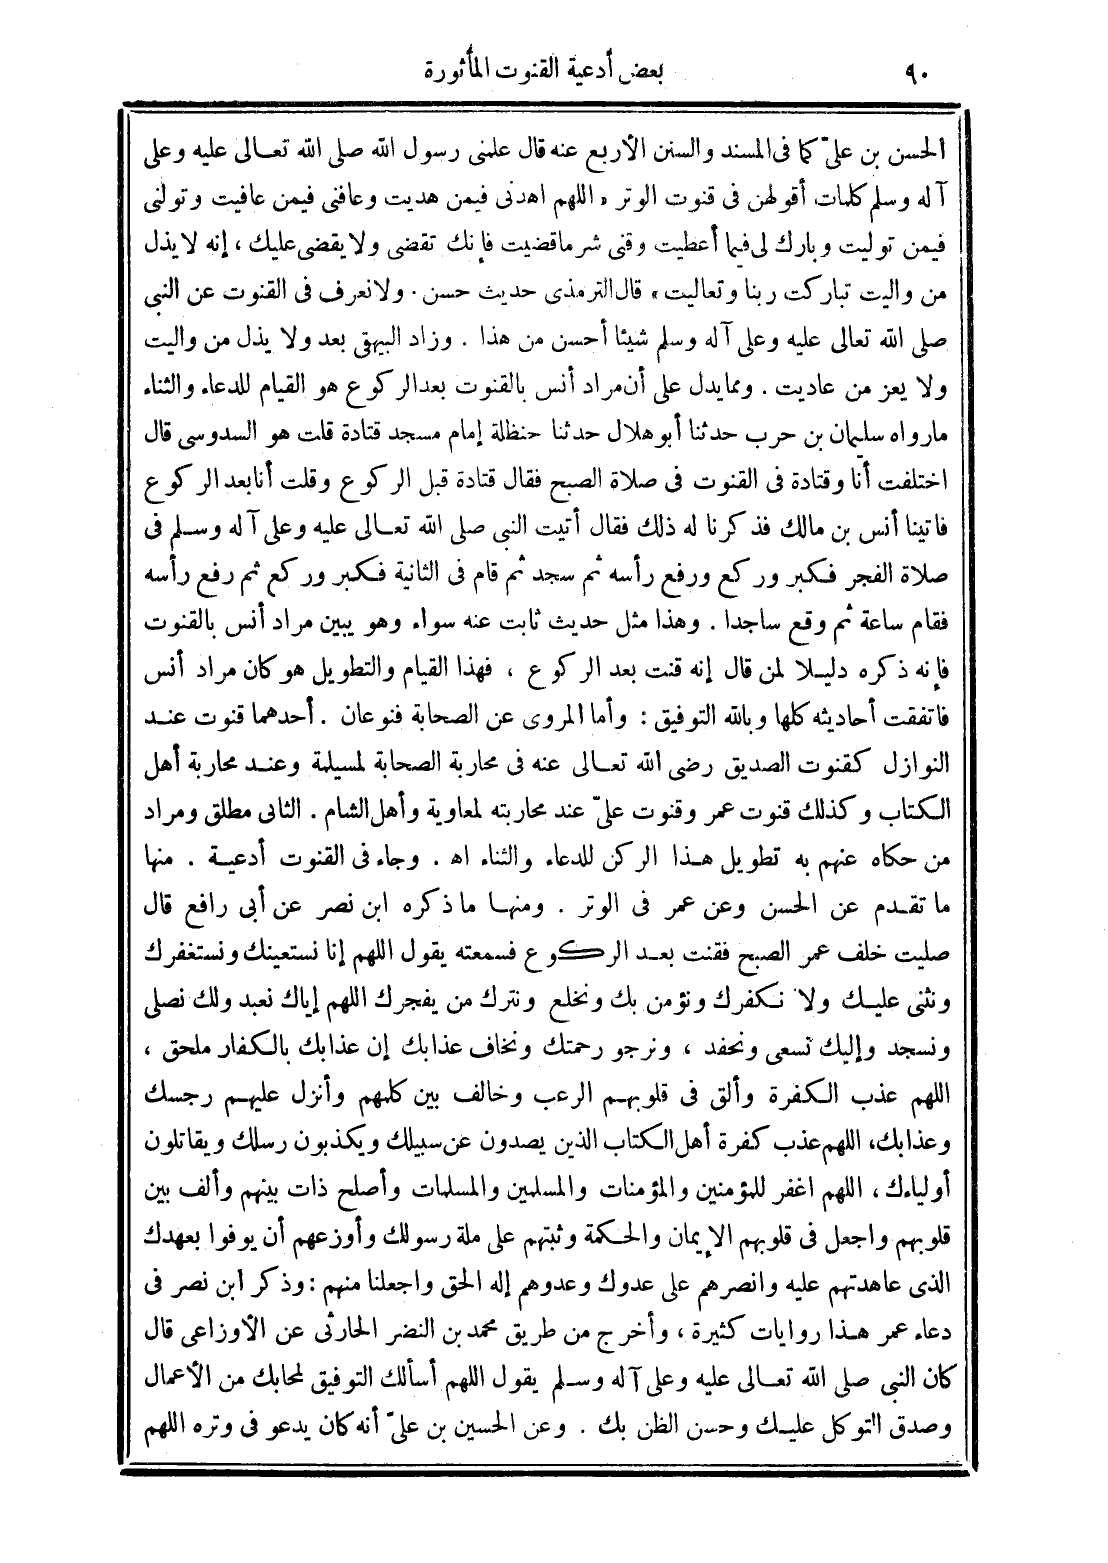 ٩٠
بعض أدعية القنوت المأثورة
الحسن بن علىّ كما فى المسند والسنن الأربع عنه قال علمنى رسول الله صلى الله تعالى عليه وعلى
آله وسلم كلمات أقولهن فى قنوت الوتر « اللهم اهدنى فيمن هديت وعافنى فيمن عافيت وتولنى
فيمن توليت وبارك لى فيما أعطيت وقنى شر ماقضيت فإنك تقضى ولا يقضى عليك ، إنه لا يذل
من واليت تباركت ربنا وتعاليت » قال الترمذى حديث حسن . ولا نعرف فى القنوت عن النبى
صلى الله تعالى عليه وعلى آله وسلم شيئا أحسن من هذا . وزاد البيهقى بعد ولا يذل من واليت
ولا يعز من عاديت . ومما يدل على أن مراد أنس بالقنوت بعد الركوع هو القيام للدعاء والثناء
مارواه سليمان بن حرب حدثنا أبو هلال حدثنا حنظلة إمام مسجد قتادة قلت هو السدوسى قال
اختلفت أنا وقتادة فى القنوت فى صلاة الصبح فقال قتادة قبل الركوع وقلت أنا بعد الركوع
فاتينا أنس بن مالك فذكرنا له ذلك فقال أتيت النبى صلى الله تعالى عليه وعلى آله وسلم فى
صلاة الفجر فكبر وركع ورفع رأسه ثم سجد ثم قام فى الثانية فكبر وركع ثم رفع رأسه
فقام ساعة ثم وقع ساجدا . وهذا مثل حديث ثابت عنه سواء وهو يبين مراد أنس بالقنوت
فإنه ذكره دليلا لمن قال إنه قنت بعد الركوع ، فهذا القيام والتطويل هو كان مراد أنس
فاتفقت أحاديثه كلها وبالله التوفيق : وأما المروى عن الصحابة فنوعان . أحدهما قنوت عند
النوازل كقنوت الصديق رضى الله تعالى عنه فى محاربة الصحابة لمسيلمة وعند محاربة أهل
الكتاب وكذلك قنوت عمر وقنوت علىّ عند محاربته لمعاوية وأهل الشام . الثانى مطلق ومراد
من حكاه عنهم به تطويل هذا الركن للدعاء والثناء اهـ . وجاء فى القنوت أدعية . منها
ما تقدم عن الحسن وعن عمر فى الوتر . ومنها ما ذكره ابن نصر عن أبى رافع قال
صليت خلف عمر الصبح فقنت بعد الركوع فسمعته يقول اللهم إنا نستعينك ونستغفرك
ونثنى عليك ولا نكفرك ونؤمن بك ونخلع ونترك من يفجرك اللهم إياك نعبد ولك نصلى
ونسجد وإليك نسعى ونحفد ، ونرجو رحمتك ونخاف عذابك إن عذابك بالكفار ملحق ،
اللهم عذب الكفرة وألق فى قلوبهم الرعب وخالف بين كلمهم وأنزل عليهم رجسك
وعذابك، اللهم عذب كفرة أهل الكتاب الذين يصدون عن سبيلك ويكذبون رسلك ويقاتلون
أولياءك ، اللهم اغفر للمؤمنين والمؤمنات والمسلمين والمسلمات وأصلح ذات بينهم وألف بين
قلوبهم واجعل فى قلوبهم الإيمان والحكمة وثبتهم على ملة رسولك وأوزعهم أن يوفوا بعهدك
الذى عاهدتهم عليه وانصرهم على عدوك وعدوهم إله الحق واجعلنا منهم : وذكر ابن نصر فى
دعاء عمر هذا روايات كثيرة ، وأخرج من طريق محمد بن النضر الحارثى عن الأوزاعى قال
كان النبى صلى الله تعالى عليه وعلى آله وسلم يقول اللهم أسألك التوفيق لمحابك من الأعمال
وصدق التوكل عليك وحسن الظن بك . وعن الحسين بن علىّ أنه كان يدعو فى وتره اللهم